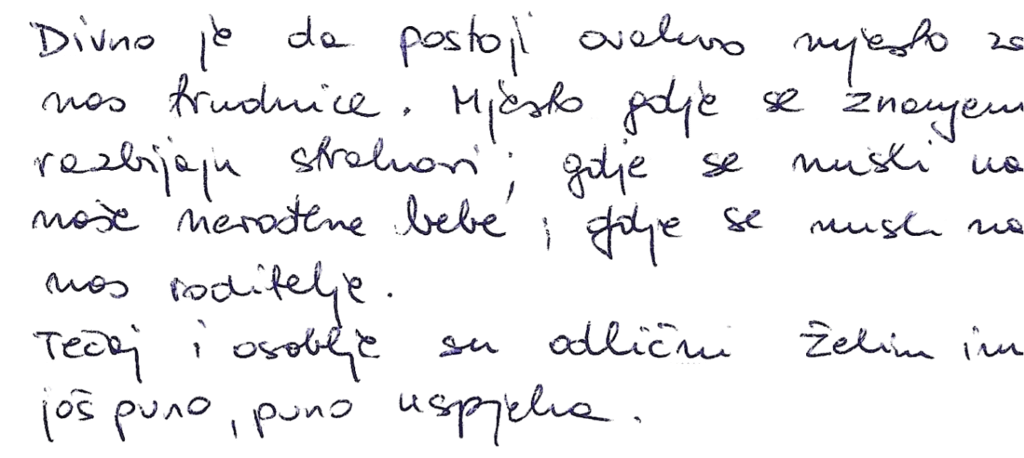 Divno je da postoji ovakvo mjesto za
nas trudnice. Mjesto gdje se znanjem
razbijaju strahovi; gdje se misli na
naše nerođene bebe; gdje se misli na
nas roditelje.
Tečaj i osoblje su odlični želim im
još puno, puno uspjeha.